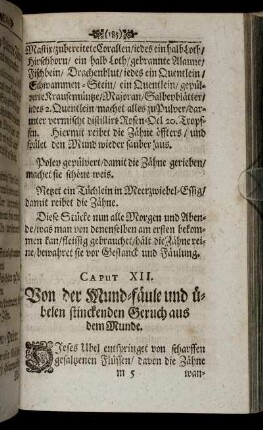 (185)
Mastix/zubereitete Corallen/iedes ein halb Loth/
Hirschhorn/ ein halb Loth/ gebrannte Alaune/
Fischbein/ Drachenblut/ iedes ein Quentlein/
Schwammen-Stein/ ein Quentlein/ gepül-
verte Krausemüntze/Majoran/Salbeyblätter/
iedes 2. Quentlein machet alles zu Pulver/dar-
unter vermischt distillirt Rosen-Oel 20. Tropf-
fen. Hiermit reibet die Zähne öffters / und
spület den Mund wieder sauber aus.
Poley gepülvert/damit die Zähne gerieben/
machet sie schöne weis.
Netzt ein Tüchlein in Meerzwiebel-Essig/
damit reibet die Zähne.
Diese Stücke nun alle Morgen und Aben-
de/was man von denenselben am ersten bekom-
men kan/fleissig gebrauchet/hält die Zähne rei-
ne/bewahret sie vor Gestanck und Fäulung.
CAPUT XII.
Von der Mund-fäule und ü-
belen stinckenden Geruch aus
dem Munde.
Dieses Ubel entspringet von scharffen
gesaltzenen Flüssen/ davon die Zähne
m 5 wan-